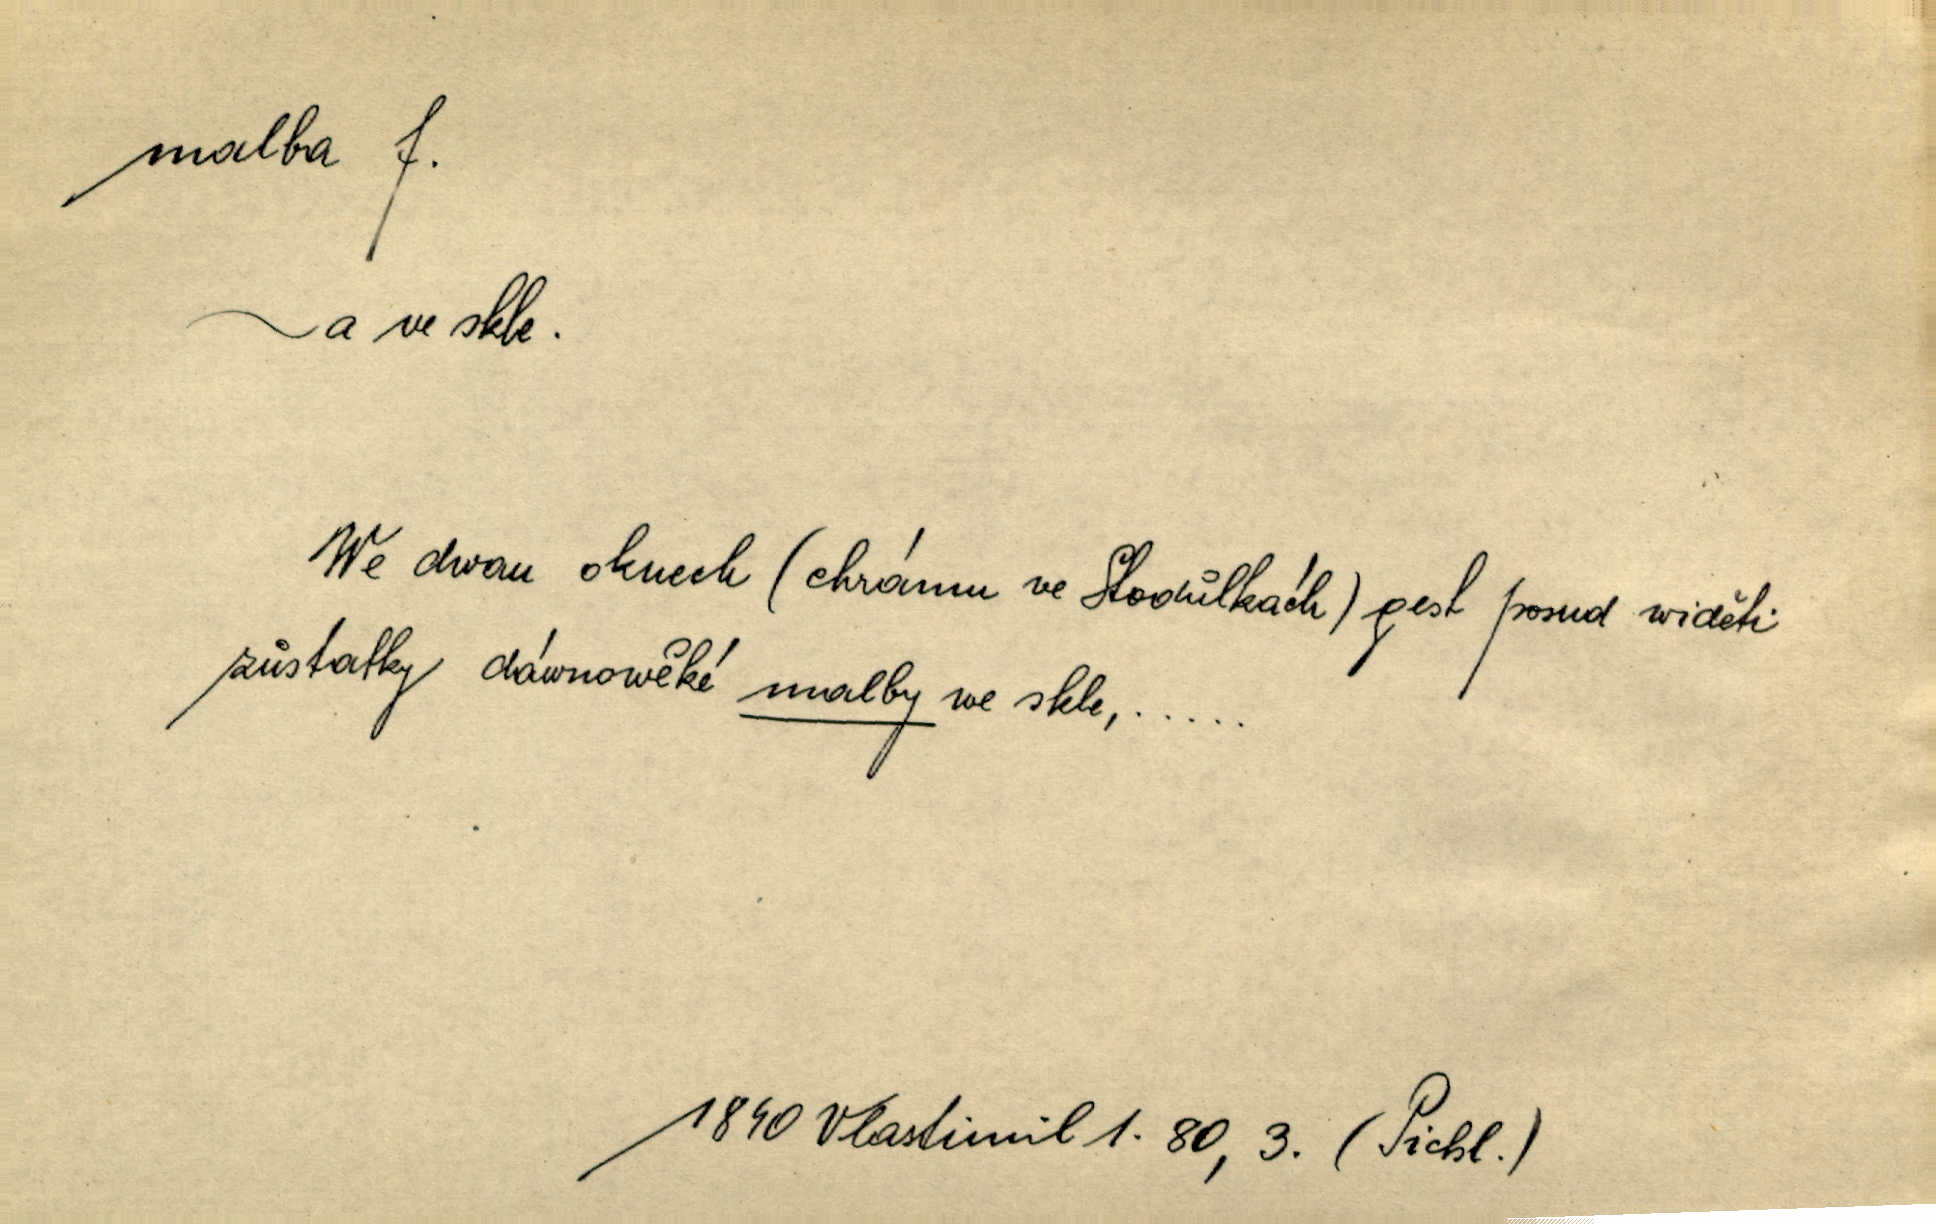 malba f.
~a ve skle.
We dwau oknech (chrámu ve Stodůlkách) gest posud widěti
zůstatky dáwnowěké malby we skle,.....
1840 Vlastimil 1. 80, 3. (Pichl.)